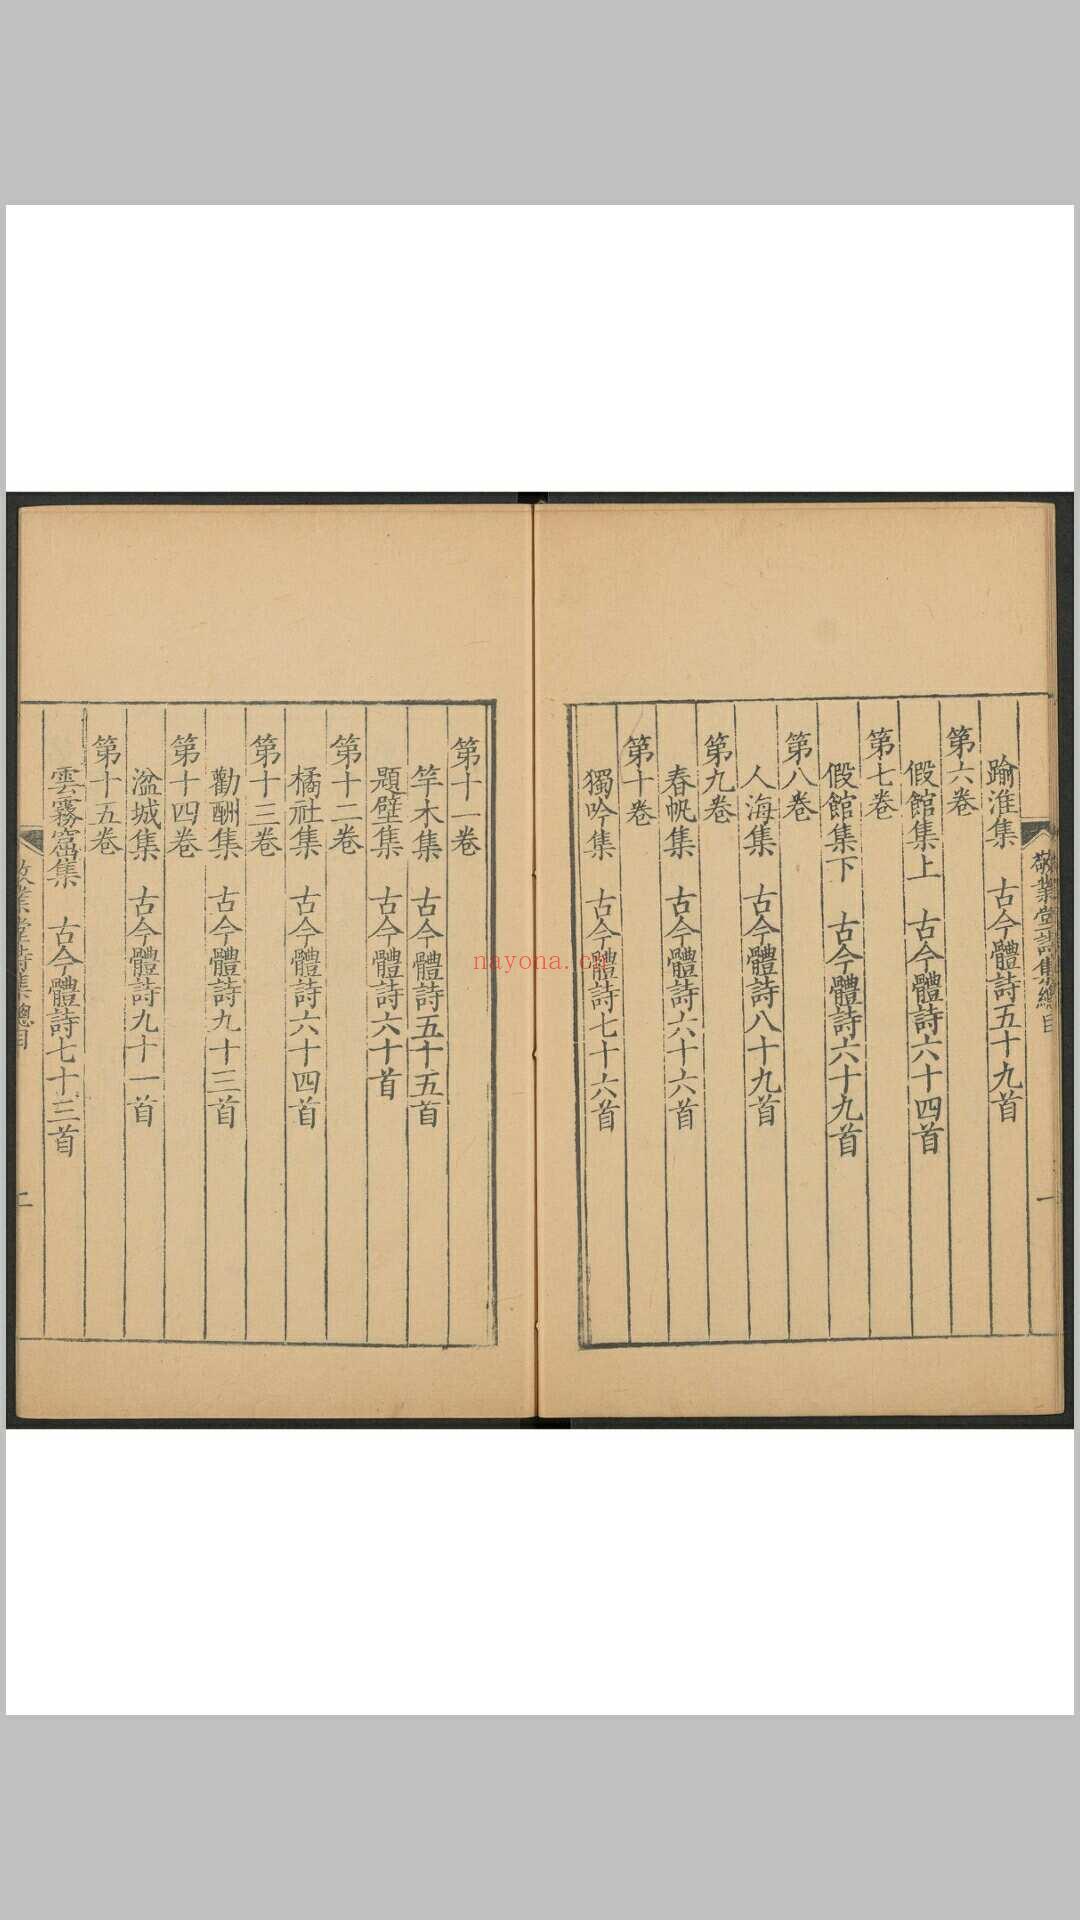 踰淮集 古今體詩五十九首
第六卷
假館集上 古今體詩六十四首
第七卷
假館集下 古今體詩六十九首
第八卷
人海集 古今體詩八十九首
第九卷
春帆集 古今體詩六十六首
第十卷
獨吟集 古今體詩七十六首
敬業堂詩集總目
一
第十一卷
竿木集 古今體詩五十五首
題壁集 古今體詩六十首
第十二卷
橘社集 古今體詩六十四首
第十三卷
勸酬集 古今體詩九十三首
第十四卷
湓城集 古今體詩九十一首
第十五卷
雲霧窟集 古今體詩七十三首
敬業堂詩集總目
二
nayona.cn